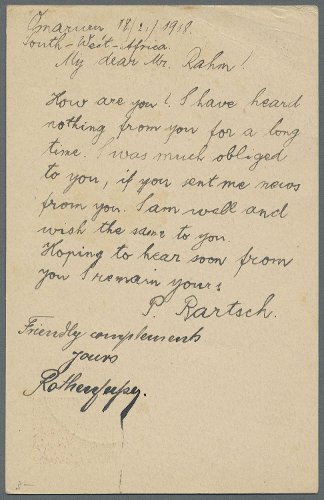 Omaruru 18/2/1918.
South-West-Africa.
My dear Mr. Rahm!
How are you? I have heard
nothing from you for a long
time. I was much obliged
to you, if you sent me news
from you. I am well and
wish the same to you.
Hoping to hear soon from
you I remain yours
P. Bartsch.
Friendly complements
yours